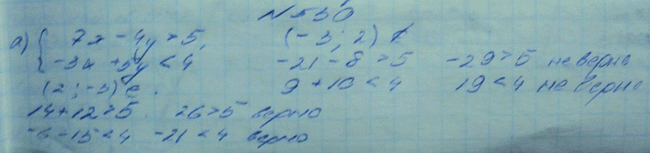 №530
а) { 7x - 4y > 5,   (-3; 2) ∉
{ -3x + 5y < 4   -21 - 8 > 5   -29 > 5 неверно
(2; -3) ∈.   9 + 10 < 4   19 < 4 неверно
14 + 12 > 5   26 > 5 верно
-6 - 15 < 4   -21 < 4 верно